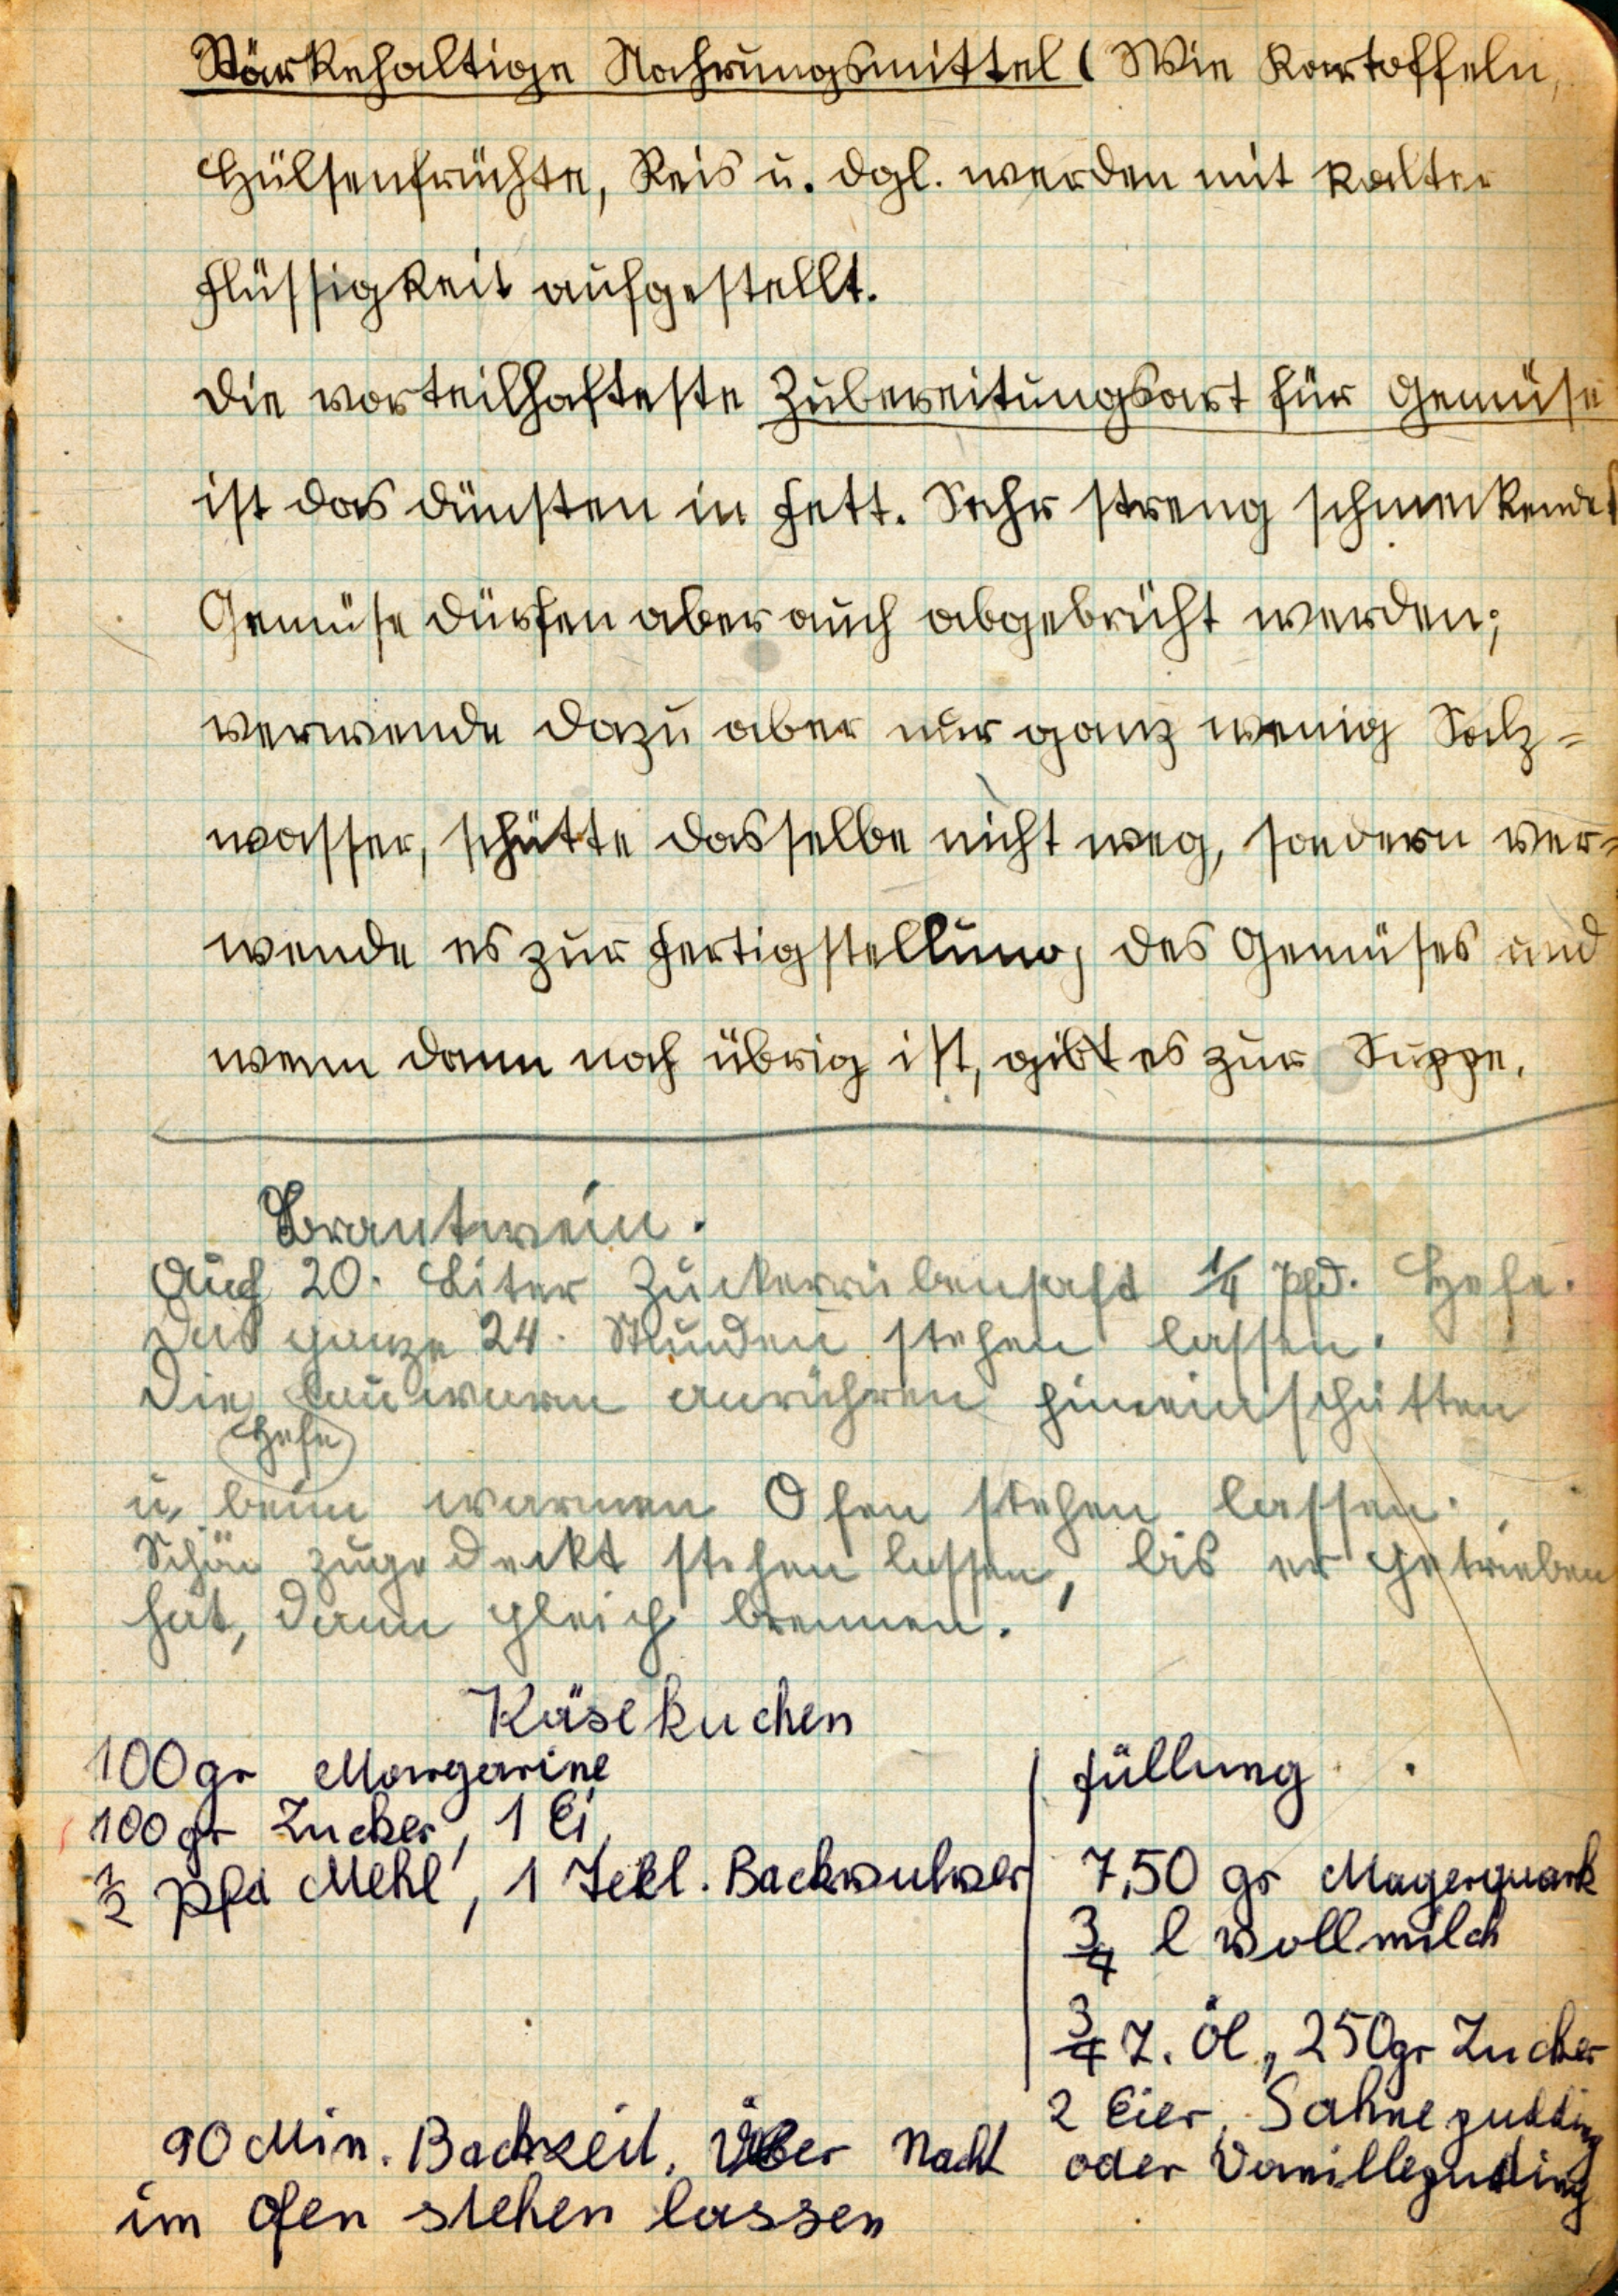 Stärkehaltige Nahrungsmittel (Wie Kartoffeln,
Hülsenfrüchte, Reis u. dgl. werden mit kalter
Flüssigkeit aufgestellt.
Die vorteilhafteste Zubereitungsart für Gemüse
ist das Dünsten in Fett. Sehr streng schmeckendes
Gemüse dürfen aber auch abgebrüht werden;
verwende dazu aber nur ganz wenig Salz=
wasser, schütte dasselbe nicht weg, sondern ver=
wende es zur Fertigstellung des Gemüses und
wenn dann noch übrig ist, gibt es zur Suppe.
Brantwein.
Auf 20. Liter Zuckerrübensaft 1/4 Pfd. Hefe.
Das ganze 24. Stunden stehen lassen.
Die lauwarm anrühren hineinschütten
Hefe
u. beim warmen Ofen stehen lassen.
Schön zugedeckt stehen lassen, bis er getrieben
hat, dann gleich brennen.
Käsekuchen
100gr Margarine
100gr Zucker, 1 Ei,
1/2 Pfd Mehl, 1 Teel. Backpulver
Füllung
7,50 gr Magerquark
3/4 l Vollmilch
3/4 T. Öl, 250gr Zucker
2 Eier, Sahnepudding
oder Vanillepuding
90 Min. Backzeit, Über Nacht
im Ofen stehen lassen